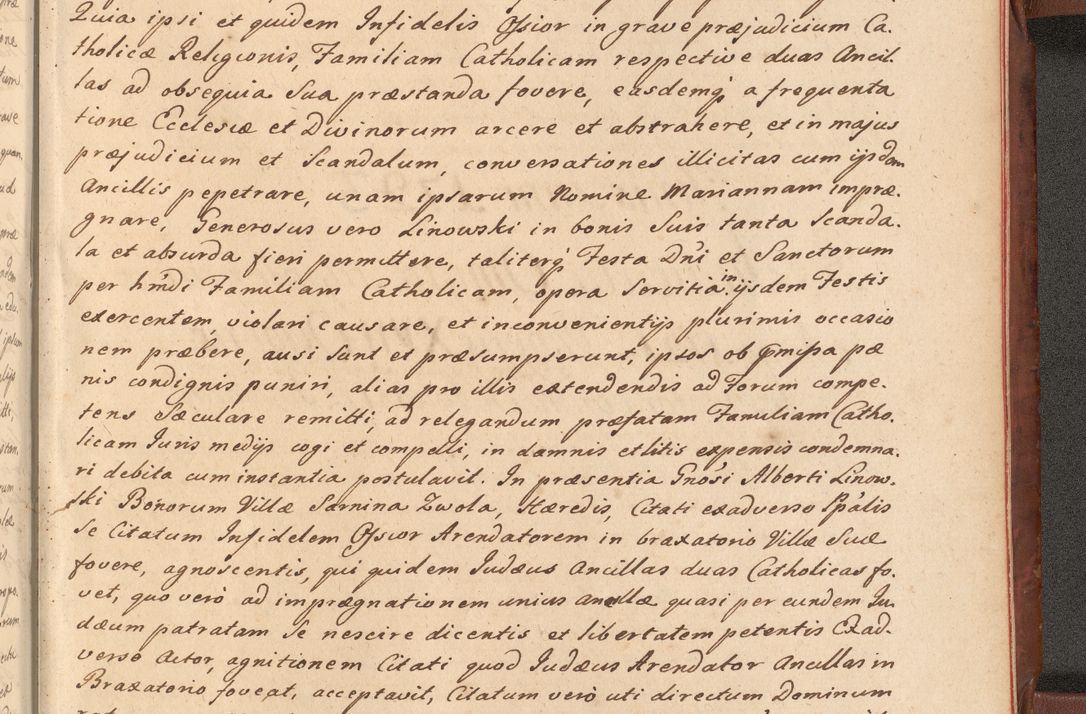 Quia ipsi et quidem Infidelis Ossior in grave præjudicium Ca-
tholicæ Religionis, Familiam Catholicam respective duas Ancil-
las ad obsequia sua præstanda fovere, easdemq́ a frequenta
tione Ecclesiæ et Divinorum arcere et abstrahere, et in majus
præjudicium et scandalum, conversationes illicitas cum ijsdem
Ancillis pepetrare, unam ipsarum Nomine Mariannam impræ-
gnare, Generosus vero Linowski in bonis suis tanta scanda-
la et absurda fieri permittere, taliterq́ Festa Dn̄i et Sanctorum
per hm̄di Familiam Catholicam, opera servitia in ijsdem Festis
exercentem, violari causare, et inconvenientijs plurimis occasio
nem præbere, ausi sunt et præsumpserunt, ipsos ob præmissa pæ
nis condignis puniri, alias pro illis extendendis ad Forum compe-
tens Sæculare remitti, ad relegandum præfatam Familiam Catho-
licam Juris medijs cogi et compelli, in damnis et litis expensis condemna-
ri debita cum instantia postulavit. In præsentia Gnōsi Alberti Linow-
ski Bonorum Villæ Sarnina Zwola, Hæredis, Citati exadverso Spālis
se Citatum Infidelem Ossior Arendatorem in braxatorio Villæ Suæ
fovere, agnoscentis, qui quidem Judæus Ancillas duas Catholicas fo-
vet, quo verò ad imprægnationem unius ancillæ quasi per eundem Ju-
dæum patratam se nescire dicentis et libertatem petentis Exad-
verso Actor, agnitionem Citati quod Judæus Arendator Ancillas in
Braxatorio foveat, acceptavit, Citatum verò uti directum Dominum